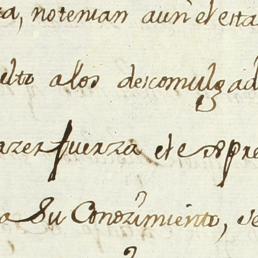 ta, notenian aun el esta
elto alos descomulgad
azer fuerza el
a Su Conozimiento, se